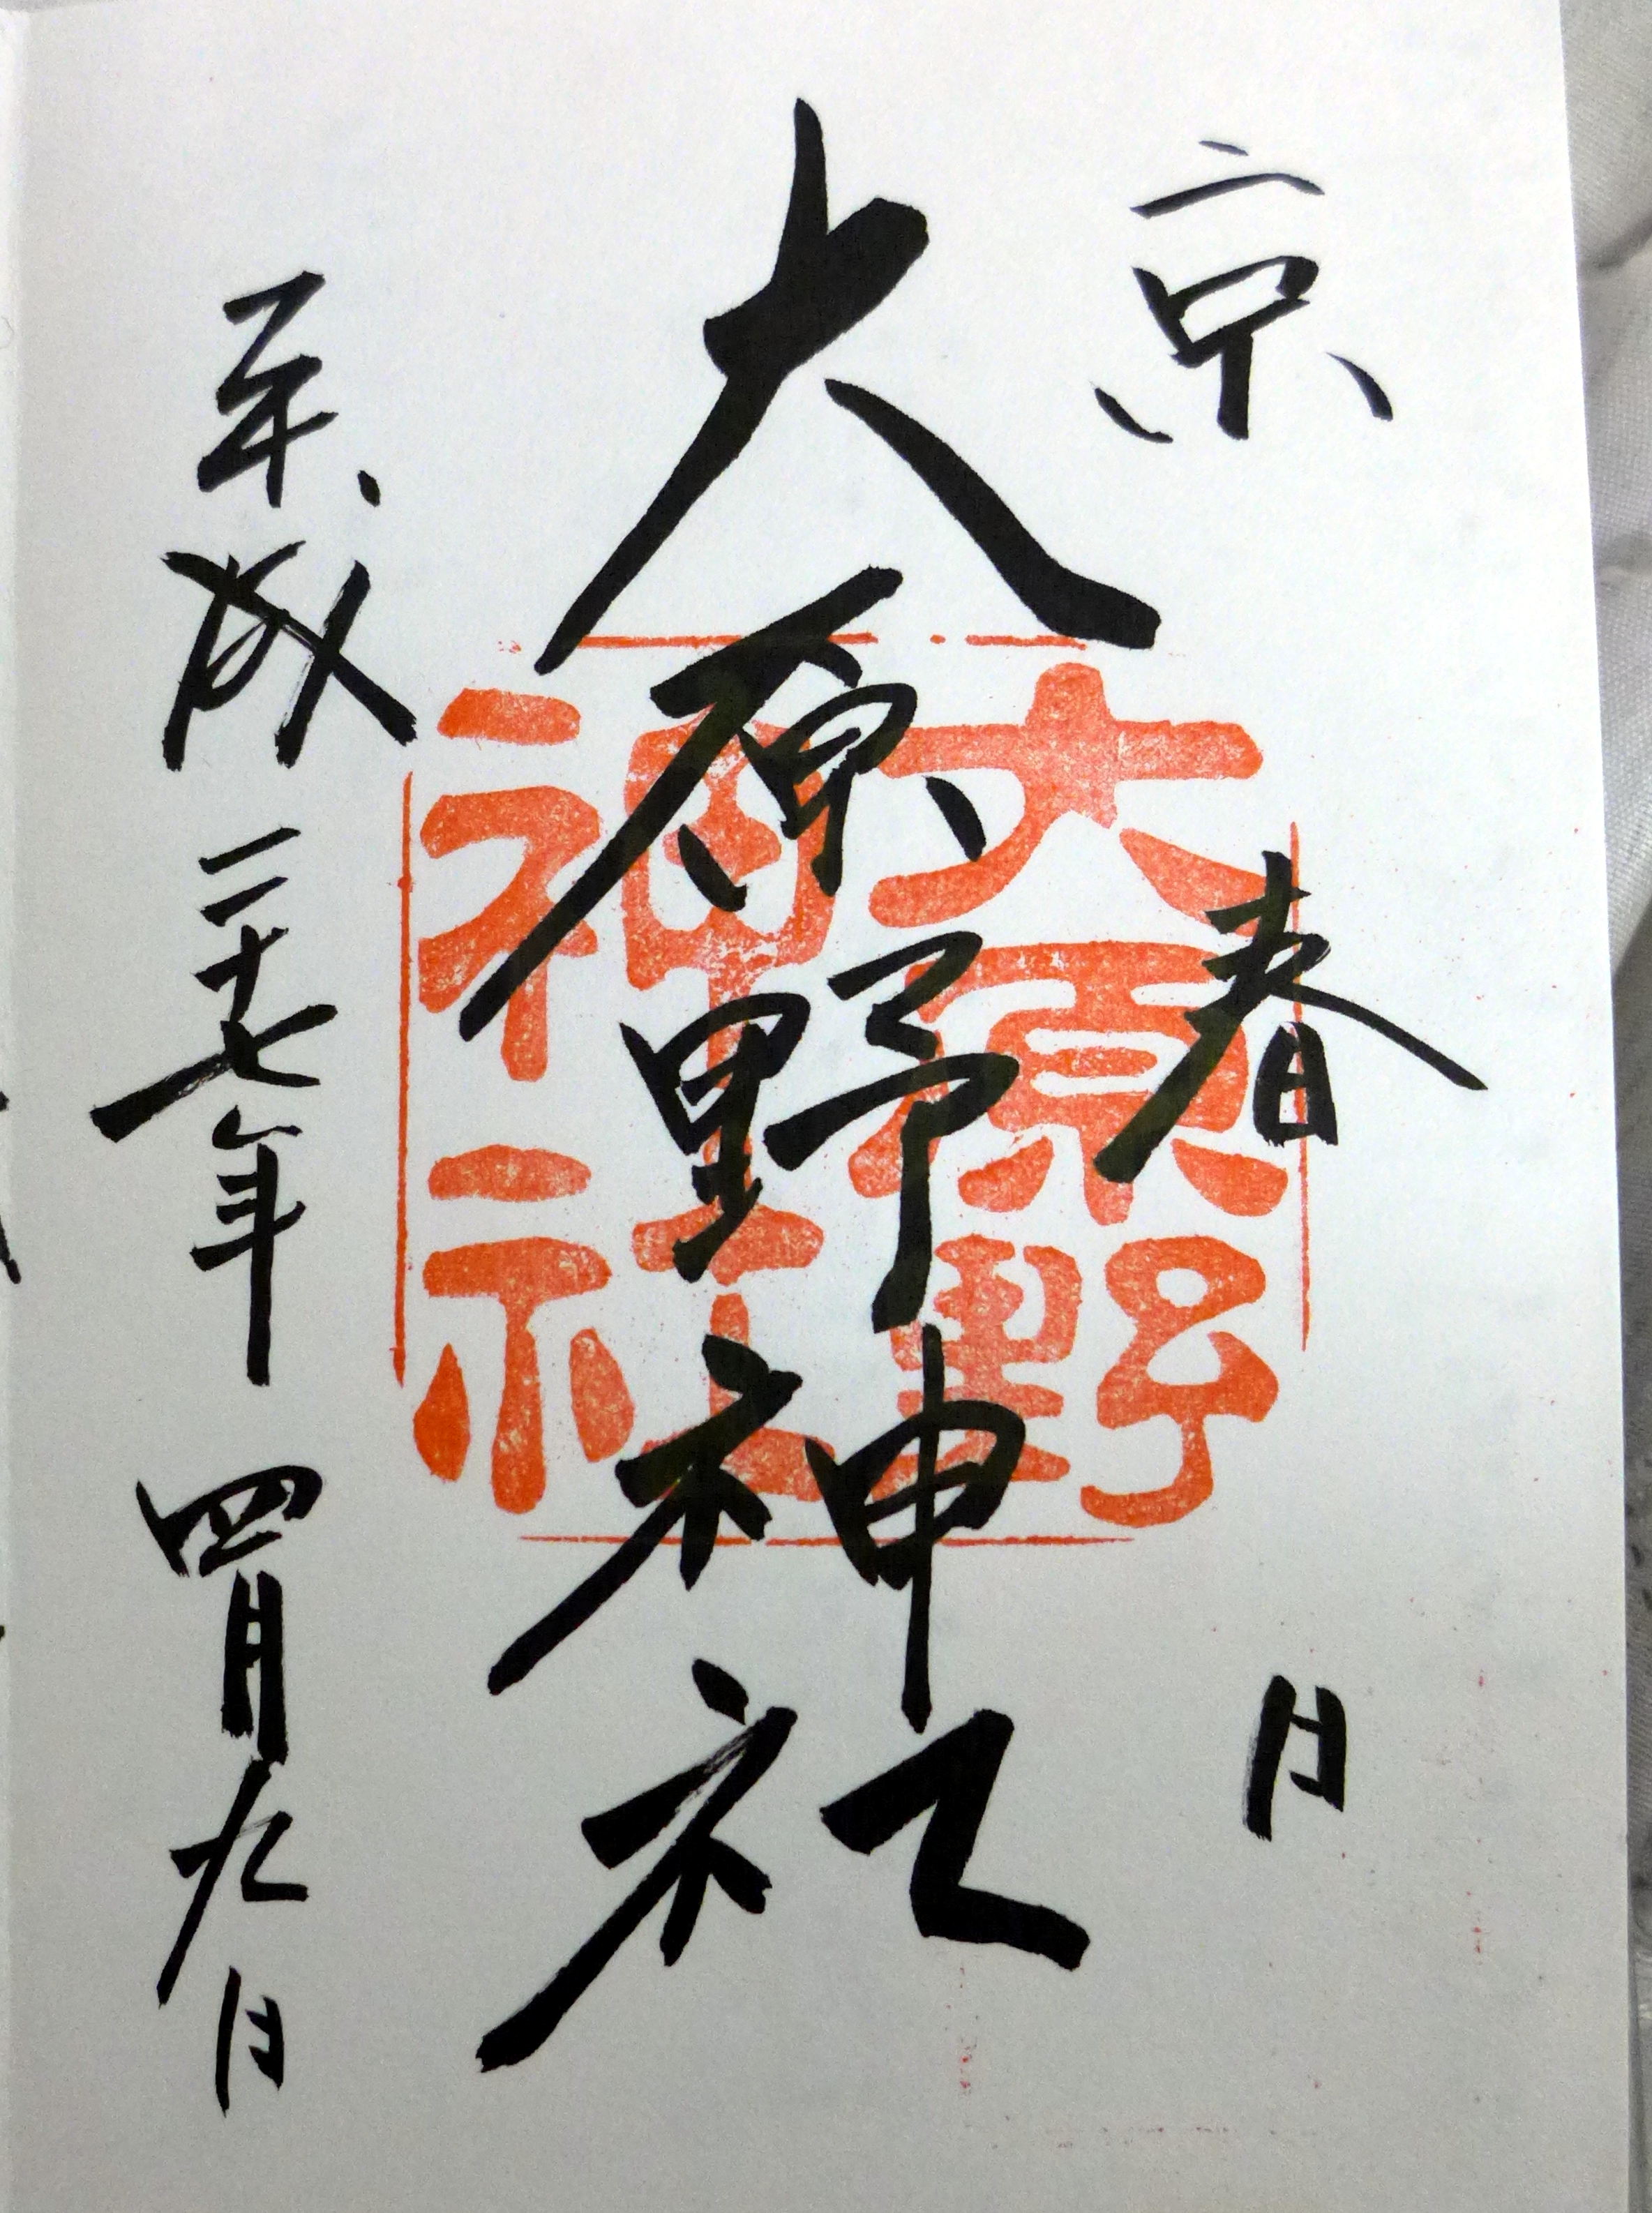 京春日
大原野神社
平成二十七年四月九日
大原野
神社